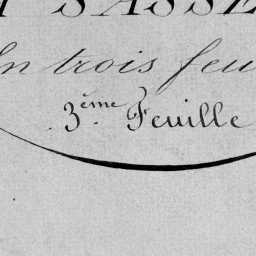 SASSE
En trois feu
3.ème Feuille